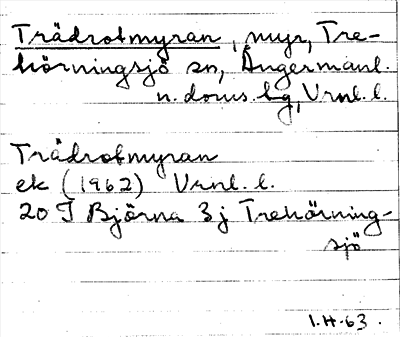 Trädrotmyran, myr, Tre-
hörningsjö sn, Ångermanl.
n. doms. hg, Vrnl. l.
Trädrotmyran
ek (1962) Vrnl. l.
20 I Björna 3j Trehörning-
sjö
I.H.63.